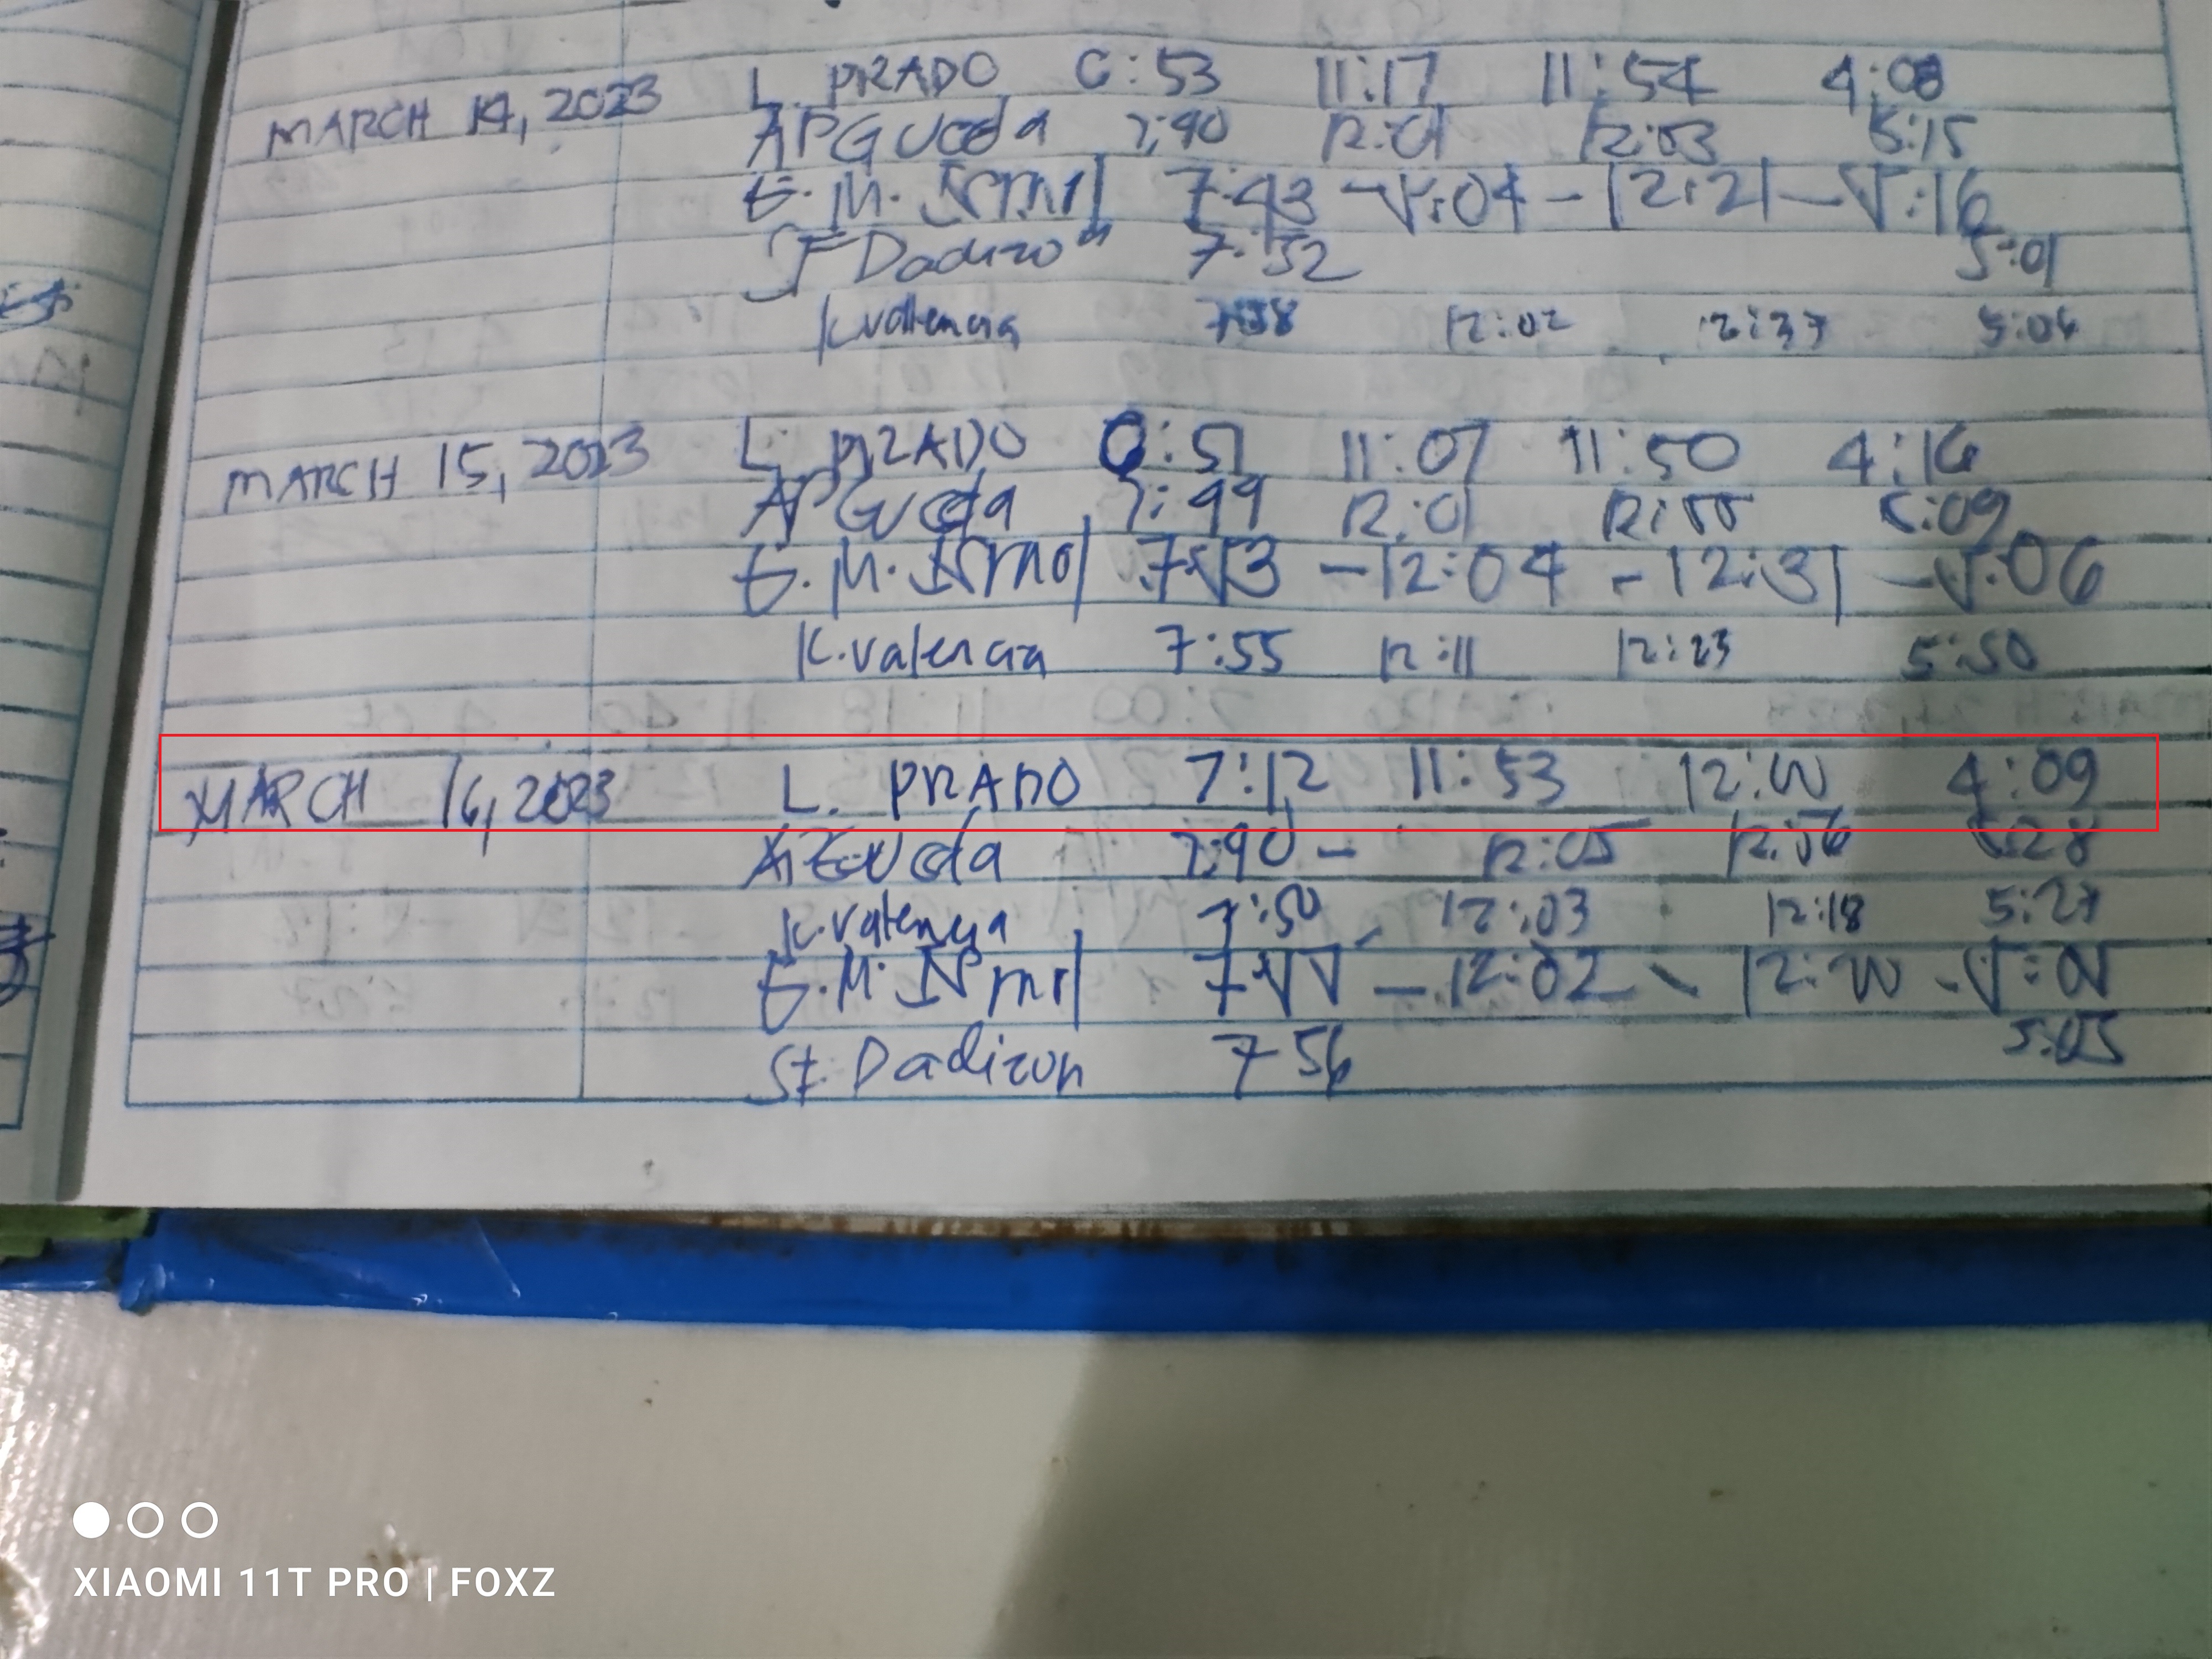 MARCH 14, 2023 L. PRADO 6:53 11:17 11:54 4:08
7:40 12:01 12:53 5:15
G.M. 7:43 12:21 5:16
Dadizon 7:52 5:01
K.valencia 7:58 12:02 12:37 5:04
MARCH 15, 2023 L. PRADO 6:51 11:07 11:50 4:16
7:44 12:01 12:55 5:09
G.M. 7:53 - 12:04 - 12:31 - 5:06
K.valencia 7:55 12:11 12:23 5:50
MARCH 16, 2023 L. PRADO 7:12 11:53 12:00 4:09
7:40 - 12:05 12:56 5:28
K.valencia 7:50 12:03 12:18 5:27
G.M. 7:55 - 12:02
Dadizon 7 56 5:05
XIAOMI 11T PRO | FOXZ